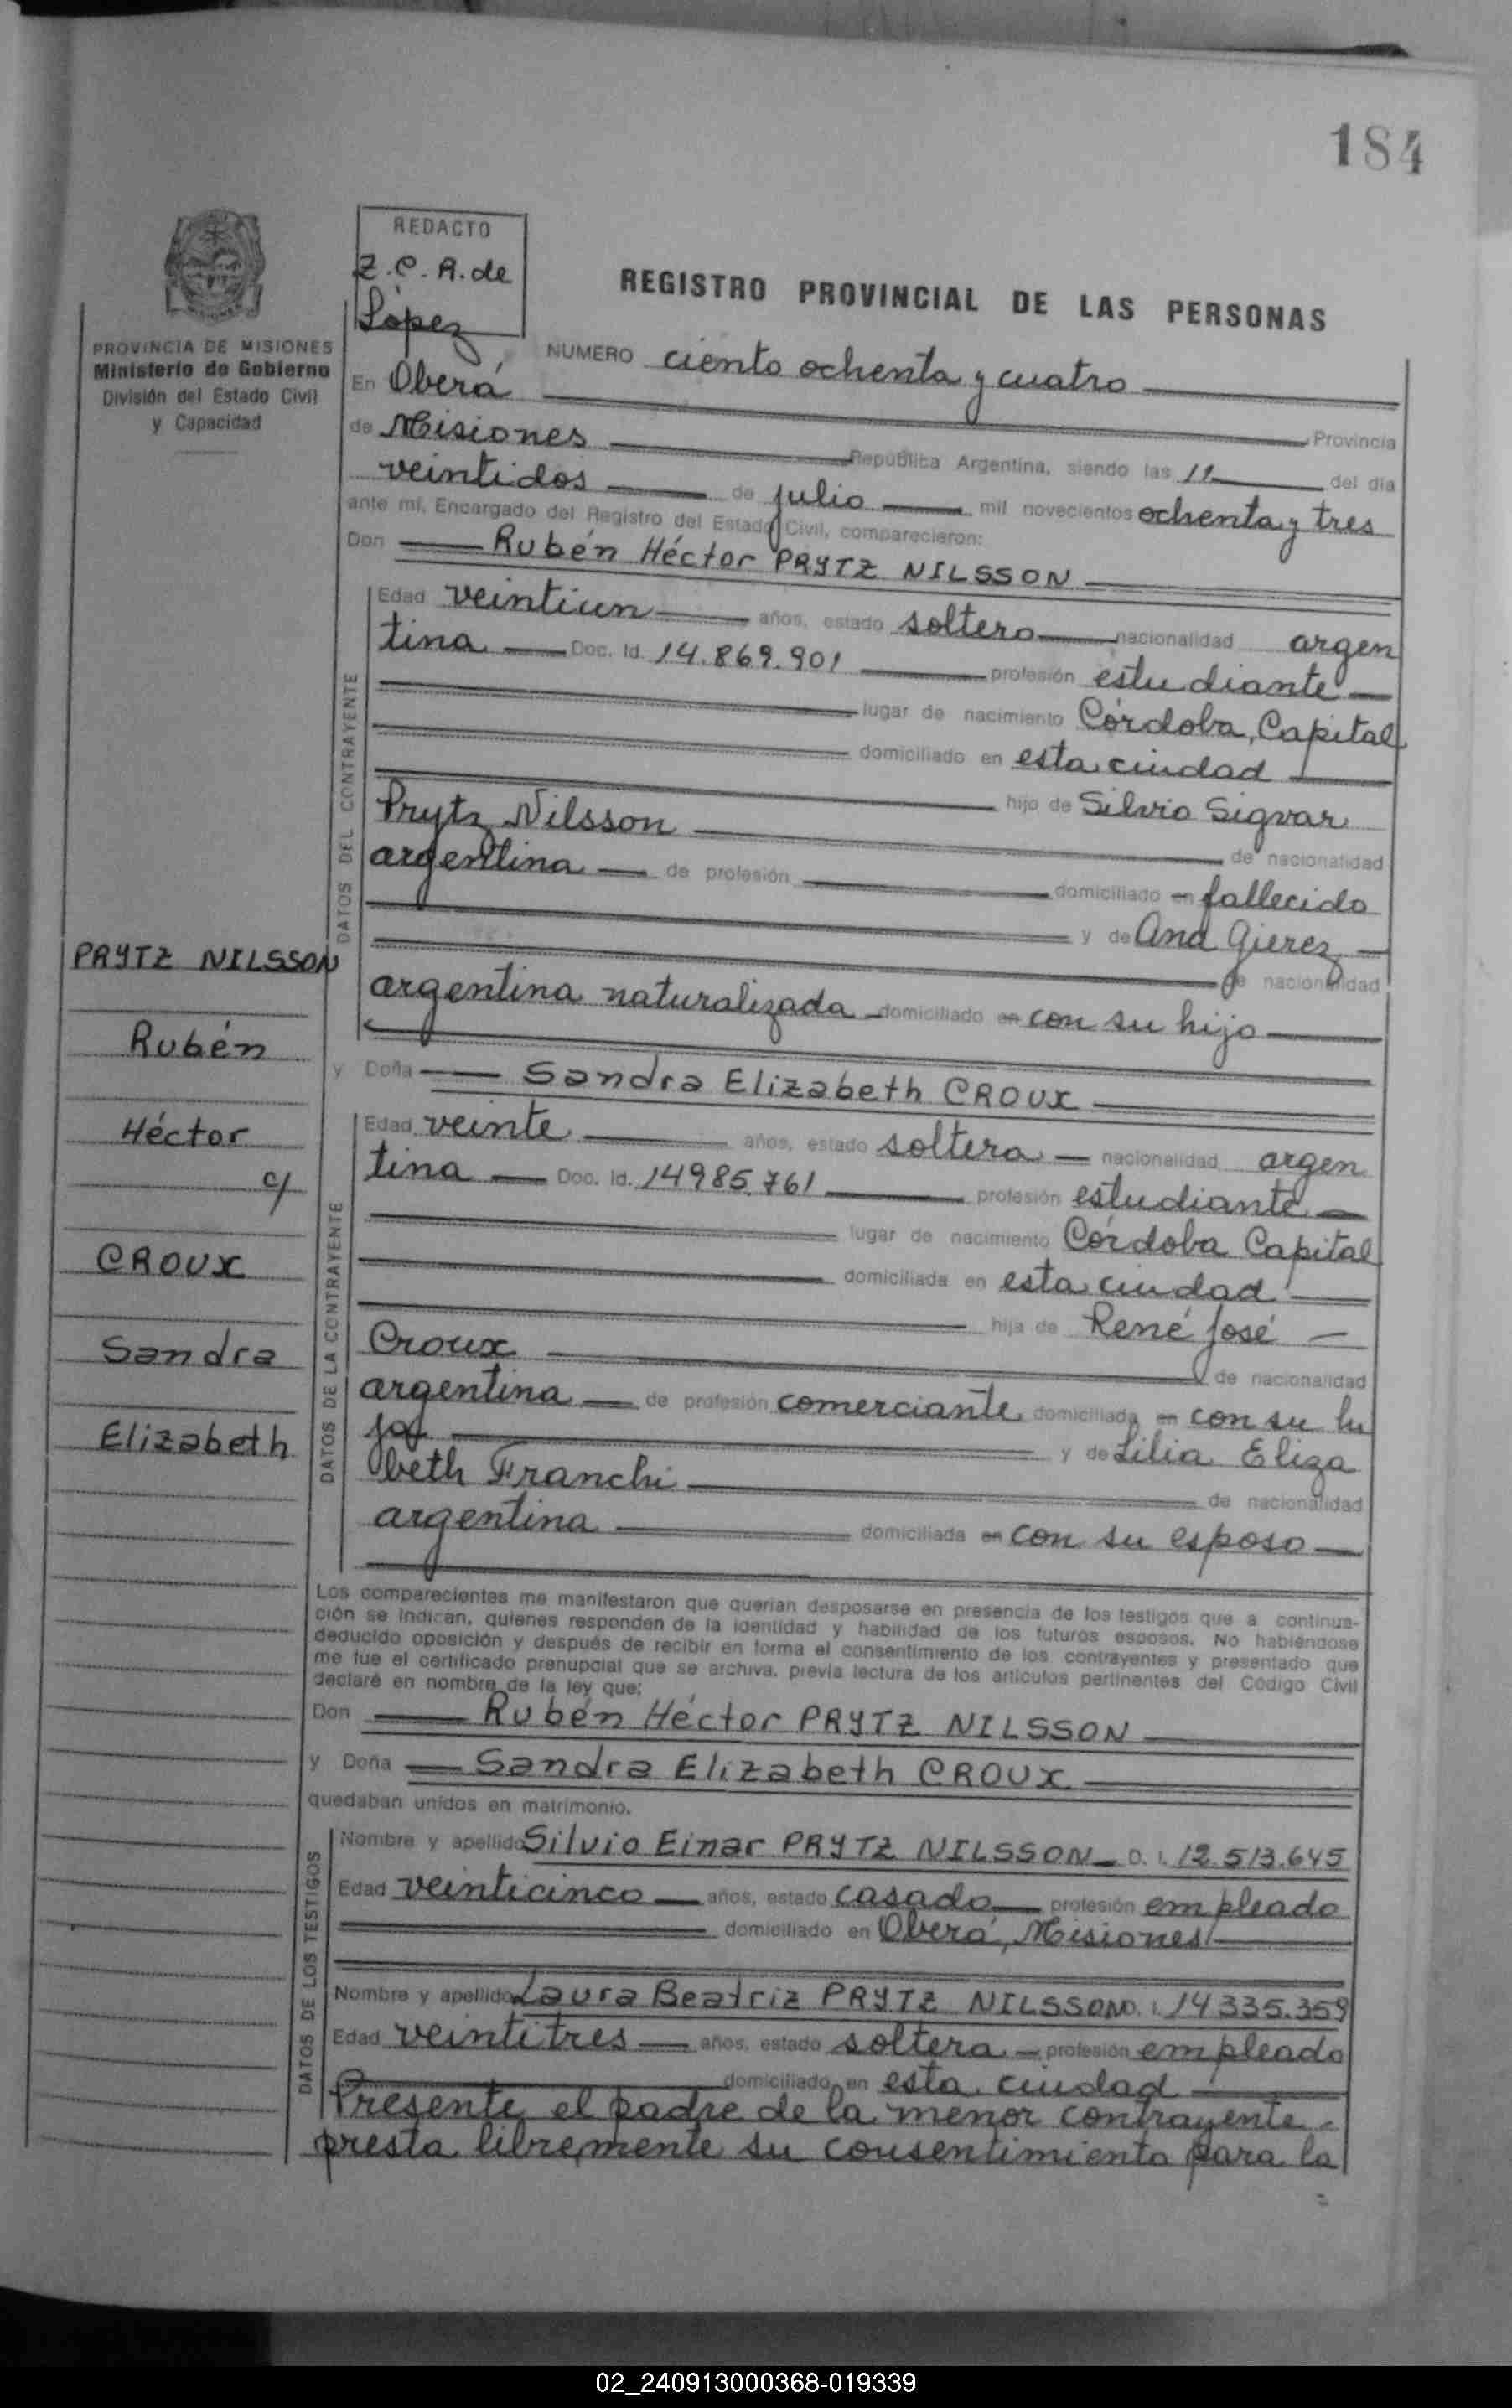 184
REDACTO
Z.C.A. de
López
REGISTRO PROVINCIAL DE LAS PERSONAS
PROVINCIA DE MISIONES
Ministerio de Gobierno
División del Estado Civil
y Capacidad
NUMERO ciento ochenta y cuatro
En Oberá Provincia
de Misiones República Argentina, siendo las 11 del día
veintidos de julio mil novecientos ochenta y tres
ante mí, Encargado del Registro del Estado Civil, comparecieron:
Don Rubén Héctor PRYTZ NILSSON
DATOS DEL CONTRAYENTE
Edad veintiun años, estado soltero nacionalidad argen
tina Doc. Id. 14.869.901 profesión estudiante
lugar de nacimiento Córdoba, Capital
domiciliado en esta ciudad
hijo de Silvio Sigvar
Prytz Nilsson de nacionalidad
argentina de profesión domiciliado en fallecido
y de Ana Gierez
de nacionalidad
argentina naturalizada domiciliado en con su hijo
y Doña Sandra Elizabeth CROUX
DATOS DE LA CONTRAYENTE
Edad veinte años, estado soltera nacionalidad argen
tina Doc. Id. 14985.761 profesión estudiante
lugar de nacimiento Córdoba Capital
domiciliada en esta ciudad
hija de René José
Croux de nacionalidad
argentina de profesión comerciante domiciliada en con su hi
ja y de Lilia Eliza
beth Franchi de nacionalidad
argentina domiciliada en con su esposo
PRYTZ NILSSON
Rubén
Héctor
c/
CROUX
Sandra
Elizabeth
Los comparecientes me manifestaron que querían desposarse en presencia de los testigos que a continua-
ción se indican, quienes responden de la identidad y habilidad de los futuros esposos. No habiéndose
deducido oposición y después de recibir en forma el consentimiento de los contrayentes y presentado que
me fue el certificado prenupcial que se archiva, previa lectura de los artículos pertinentes del Código Civil
declaré en nombre de la ley que:
Don Rubén Héctor PRYTZ NILSSON
y Doña Sandra Elizabeth CROUX
quedaban unidos en matrimonio.
DATOS DE LOS TESTIGOS
Nombre y apellido Silvio Einar PRYTZ NILSSON D. I. 12.513.645
Edad veinticinco años, estado casado profesión empleado
domiciliado en Oberá, Misiones
Nombre y apellido Laura Beatriz PRYTZ NILSSON D. I. 14335.359
Edad veintitres años, estado soltera profesión empleado
domiciliado en esta ciudad
Presente el padre de la menor contrayente
presta libremente su consentimiento para la
02_240913000368-019339